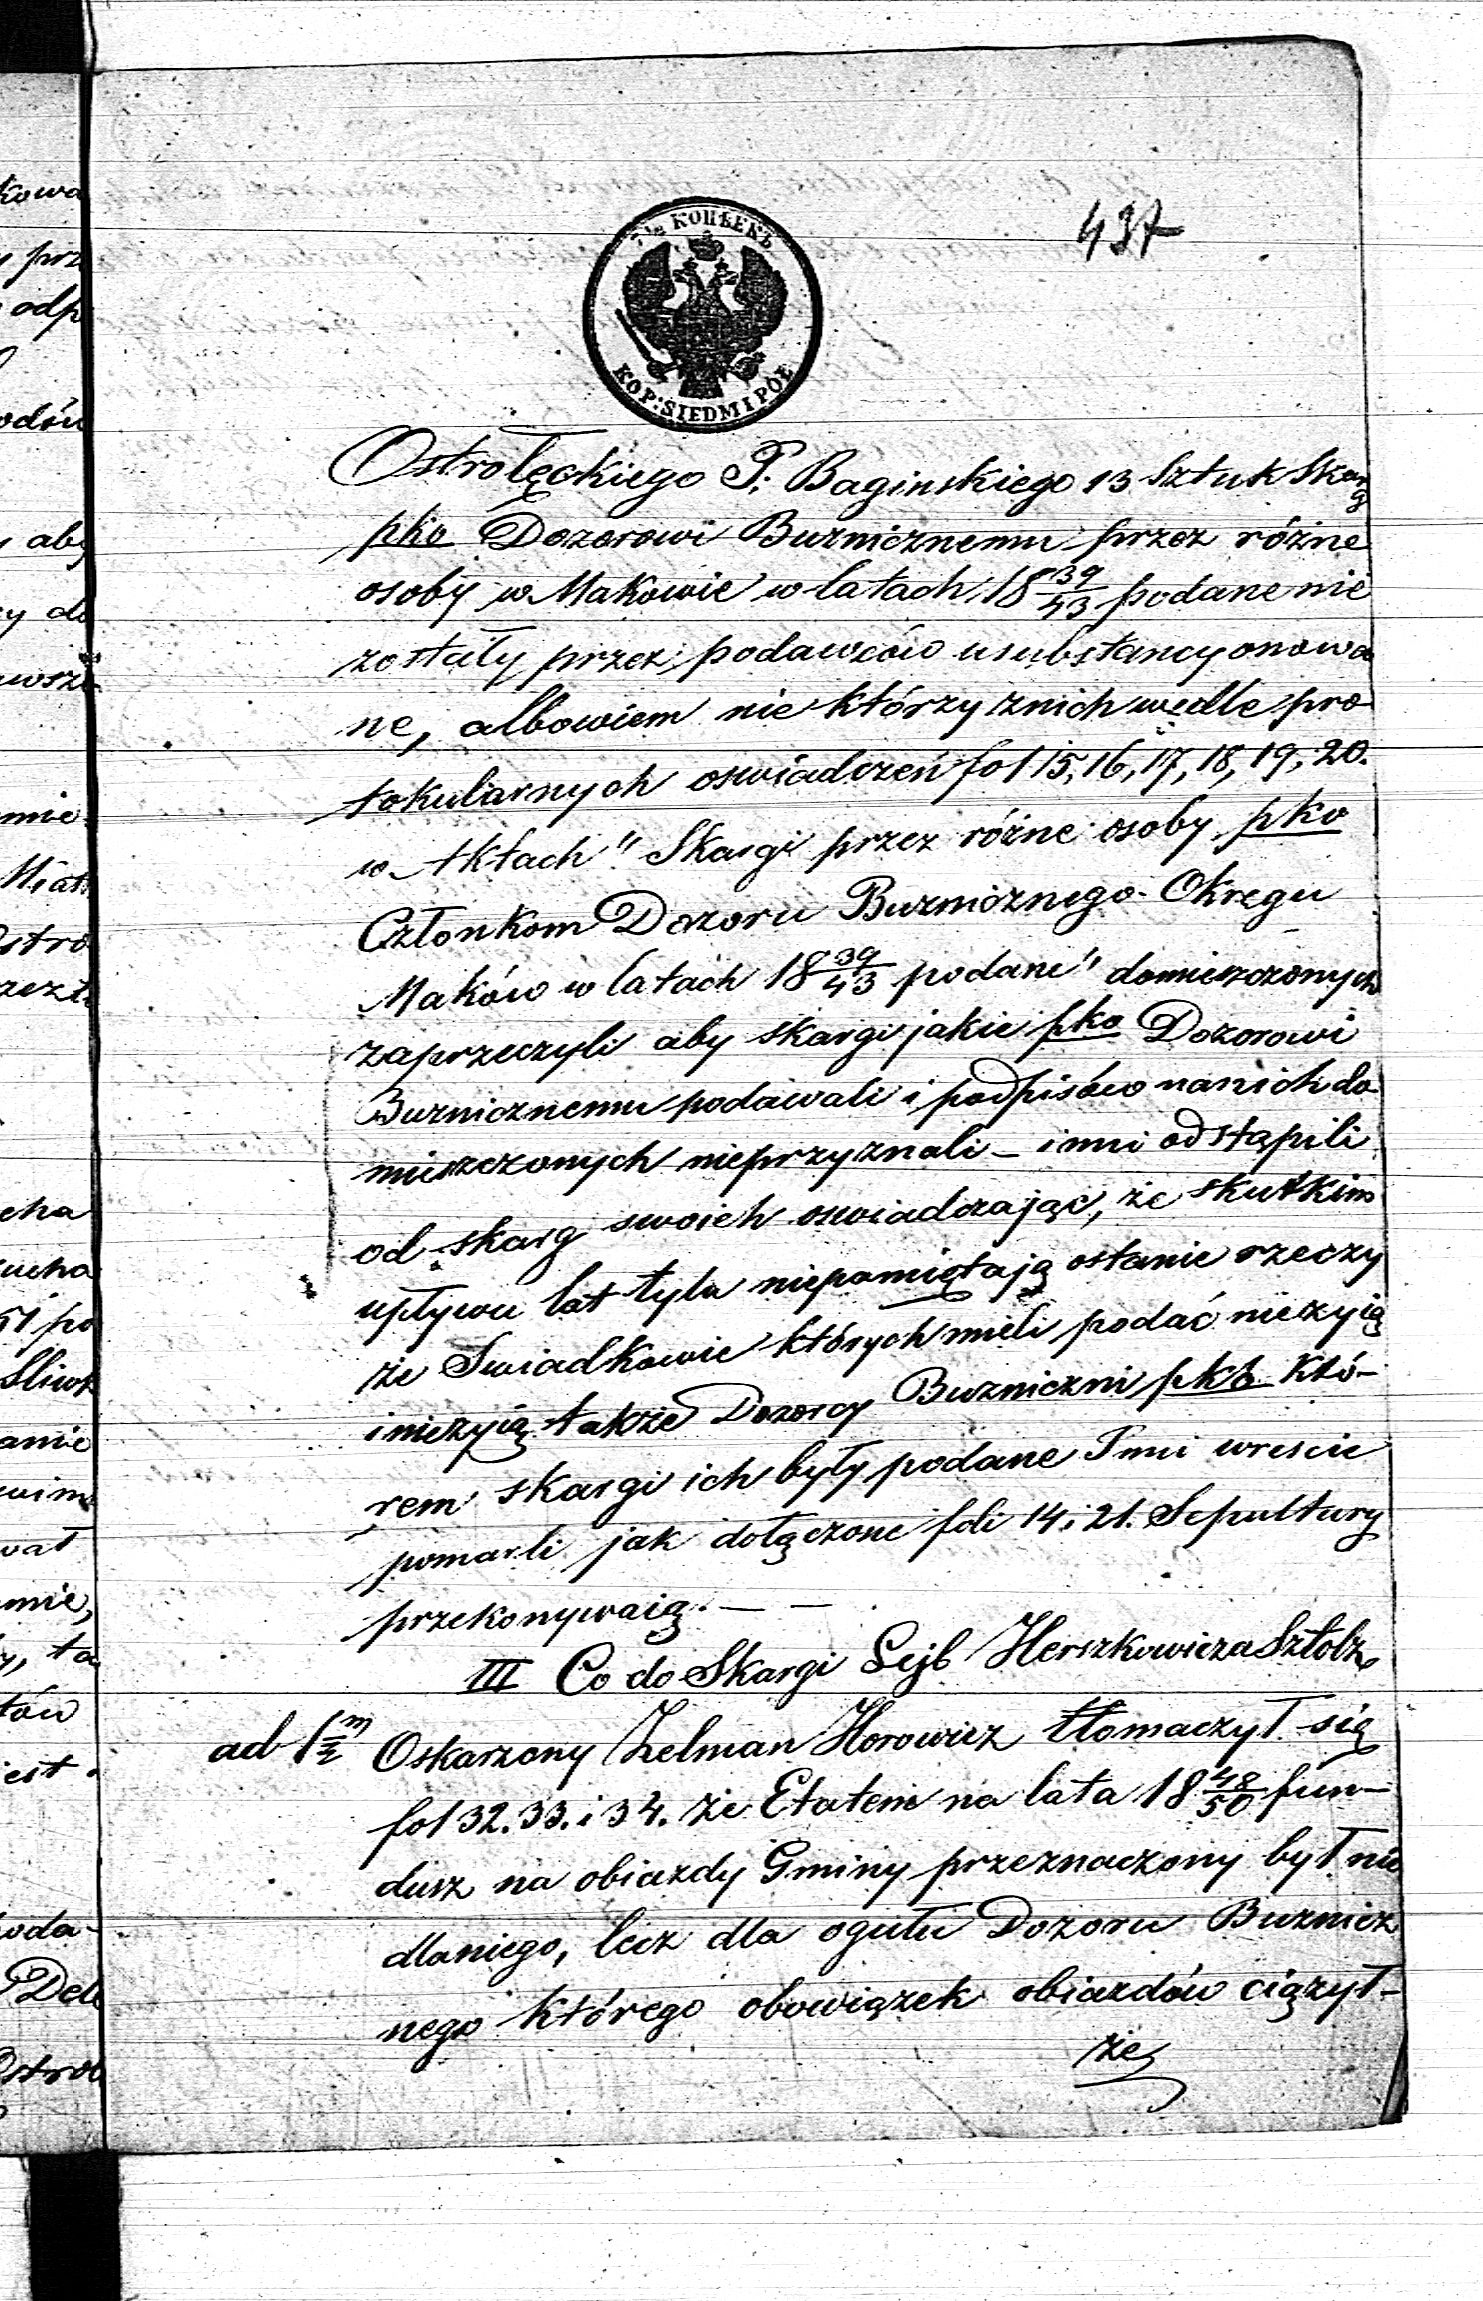 437
7½ КОПѢЕКЪ
KOP: SIEDM I PÓŁ
Ostrołęckiego P. Baginskiego 13 Sztuk Skarg
pko Dozorowi Buznicznemu przez różne
osoby w Makowie w latach 18 39/43 podane nie
zostały przez podawców usubstancyonowa
ne, albowiem nie którzy z nich wedle pro
tokularnych oswiadczeń fol 15, 16, 17, 18, 19, 20.
w Aktach "Skargi przez różne osoby pko
Członkom Dozoru Buznicznego Okręgu
Maków w latach 18 39/43 podane" domieszczonych
zaprzeczyli aby skargi jakie pko Dozorowi
Buznicznemu podawali i podpisów na nich do
mieszczonych nieprzyznali – inni odstąpili
od skarg swoich oswiadczając, że skutkiem
upływu lat tylu niepamiętają ostanie rzeczy
że Swiadkowie których mieli podać nieżyją
i nieżyją także Dozorcy Buzniczni pko któ-
rem skargi ich były podane Inni wreście
pomarli jak dołączone foli 14 i 21. Sepultury
przekonywają. — —
III Co do Skargi Lejb Herszkowicza Sztolz
ad 1m Oskarzony Zelman Horowicz tłomaczył się
fol 32. 33. i 34. że Etatem na lata 18 48/50 fun-
dusz na obiazdy Gminy przeznaczony był nie
dlaniego, lecz dla ogułu Dozoru Buznicz
nego którego obowiązek obiazdów ciązył –
że
kowa
prz
odp
odów
aby
y do
wsze
mie
Miat
Ostro
rzez
cha
ucha
51 po
Sliwk
anie
wim
wat
mie,
y, ta
tów
iest
oda-
Dele
Ostroł